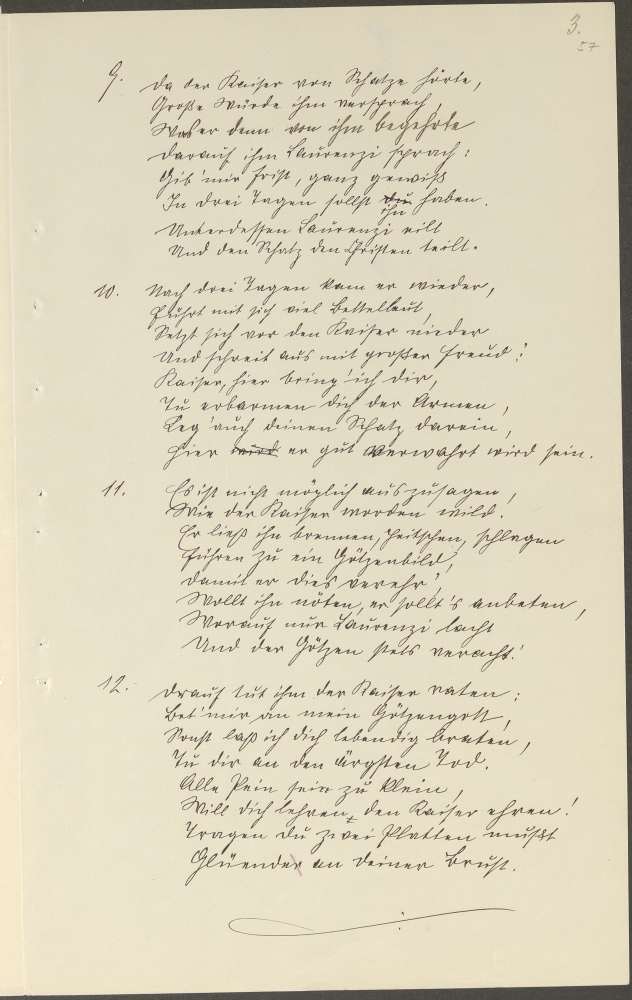 3.
57
9. Da der Kaiser von Schatze hörte,
Große Würde ihm versprach,
Was er denn von ihm begehrte
Darauf ihm Laurenzi sprach:
Gib' mir Frist, ganz gewiß
In drei Tagen sollst du ihn haben.
Unterdessen Laurenzi eilt
Und den Schatz den Christen teilt.
10. Nach drei Tagen kam er wieder,
Führt mit sich viel Bettelleut,
Setzt sich vor den Kaiser nieder
Und schreit aus mit großer Freud:
Kaiser, hier bring' ich dir,
Tu erbarmen dich der Armen,
Leg' auch deinen Schatz darein,
Hier wird er gut verwahrt wird sein.
11. Es ist nicht möglich auszusagen,
Wie der Kaiser worden wild.
Er ließ ihn brennen, peitschen, schlagen
Führen zu ein Götzenbild,
Damit er dies verehr'
Wollt ihn nöten, er sollt's anbeten,
Worauf nur Laurenzi lacht
Und der Götzen stets veracht.
12. Drauf tut ihm der Kaiser raten:
Bet' mir an mein Götzengott,
Sonst laß ich dich lebendig braten,
Tu dir an den ärgsten Tod.
Alle Pein sein zu klein,
Will dich lehren, den Kaiser ehren!
Tragen du zwei Platten mußt
Glüender an deiner Brust.